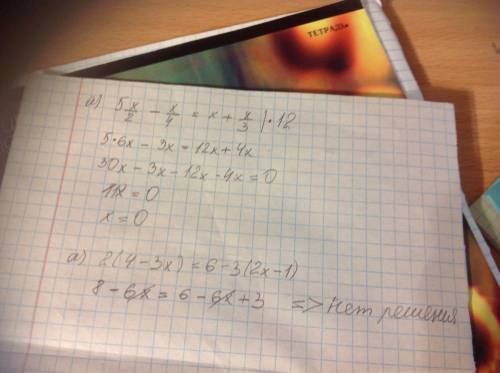 ТЕТРАДЬ
а) 5x/2 - x/4 = x + x/3 |·12
5·6x - 3x = 12x + 4x
30x - 3x - 12x - 4x = 0
11x = 0
x = 0
а) 2(4-3x) = 6-3(2x-1)
8 - 6x = 6 - 6x + 3 => нет решения